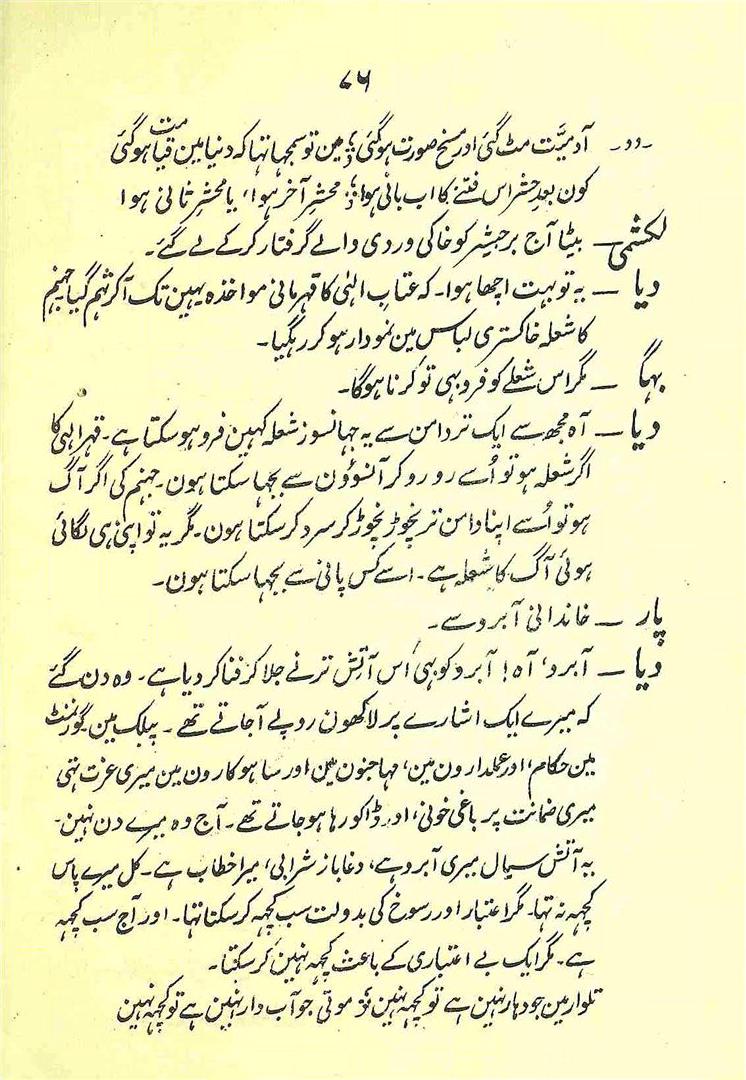 ۷۶
-دد- آدمیّت مٹ گئی اور مسخ صورت ہو گئی ؛ مین تو سمجہا تہا کہ دنیا مین قیامت ہو گئی
کون بعد حشر اس فتنے کا اب بانی ہوا ؛ محشر آخر ہوا، یا محشر ثانی ہوا
لکشمی — بیٹا آج برجیشر کو خاکی وردی والے گرفتار کر کے لے گئے۔
دیا — یہ تو بہت اچھا ہوا۔ کہ عتاب الٰہی کا قہرمانی مواخذہ یہین تک آ کر تھم گیا جہنم
کا شعلہ خاکستری لباس مین نمودار ہو کر رہگیا۔
بہگا — مگر اس شعلے کو فرو بہی تو کرنا ہوگا۔
دیا — آہ مجھ سے ایک تر دامن سے یہ جہانسوز شعلہ کہین فرو ہو سکتا ہے۔ قہر الٰہی کا
اگر شعلہ ہو تو اُسے رو رو کر آنسوؤن سے بجہا سکتا ہون۔ جہنم کی اگر آگ
ہو تو اُسے اپنا دامن تر نچوڑ نچوڑ کر سرد کر سکتا ہون۔ مگر یہ تو اپنی ہی لگائی
ہوئی آگ کا شعلہ ہے۔ اسے کس پانی سے بجہا سکتا ہون۔
پار — خاندانی آبرو سے۔
دیا — آبرو، آہ! آبرو کو بہی اُس آتش تر نے جلا کر فنا کر دیا ہے۔ وہ دن گئے
کہ میرے ایک اشارے پر لاکھون روپے آ جاتے تھے۔ پبلک مین۔ گورنمنٹ
مین حکام، اور عملدارون مین، مہاجنون مین اور ساہوکارون مین میری عزت تہی
میری ضمانت پر باغی خونی، اور ڈاکو رہا ہو جاتے تھے۔ آج وہ میرے دن نہین۔
یہ آتش سیال میری آبرو ہے، دغاباز شرابی، میرا خطاب ہے۔ کل میرے پاس
کچہہ نہ تہا۔ مگر اعتبار اور رسوخ کی بدولت سب کچہہ کر سکتا تہا۔ اور آج سب کچہہ
ہے۔ مگر ایک بے اعتباری کے باعث کچہہ نہین کر سکتا۔
تلوار مین جو دہار نہین ہے تو کچہہ نہین ؛ موتی جو آب دار نہین ہے تو کچہہ نہین